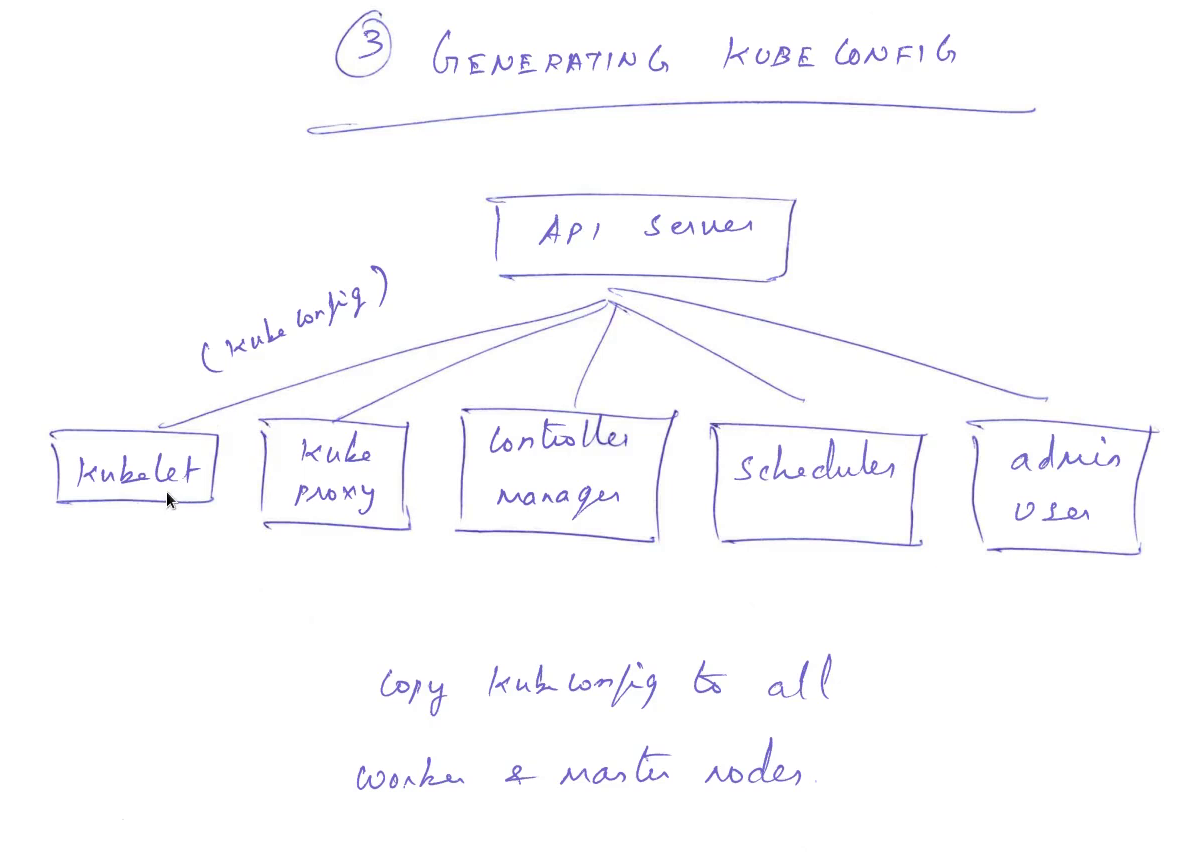 3 GENERATING KUBECONFIG
API Server
(kubeconfig)
kubelet
kube
proxy
controller
manager
scheduler
admin
user
copy kubeconfig to all
worker & master nodes.